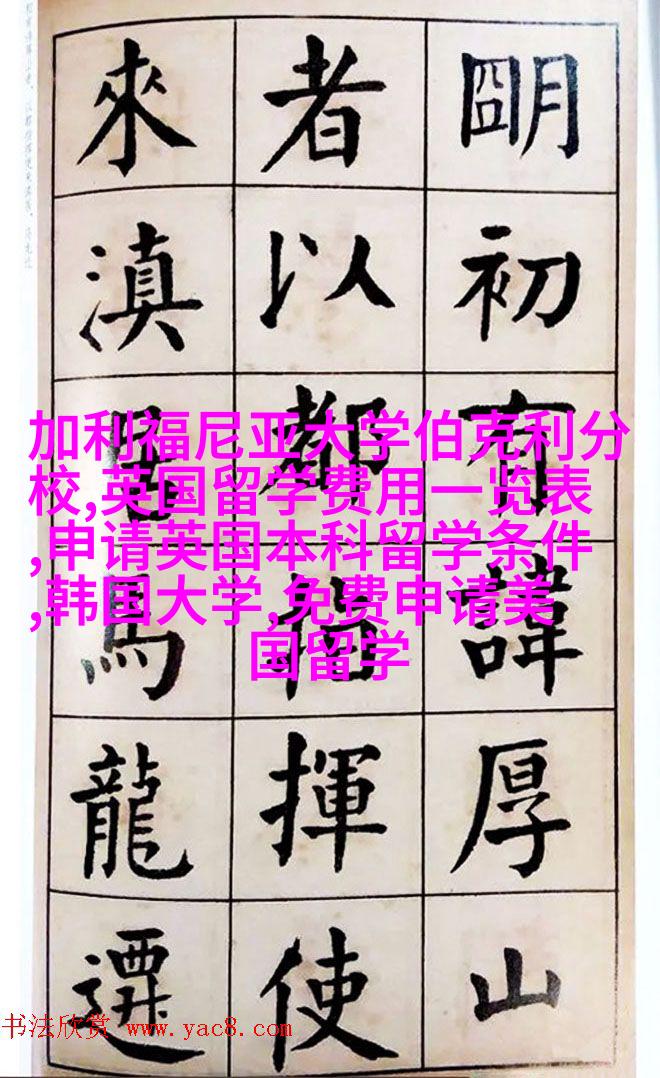 朙初有諱厚山
者以都指揮使
來滇馬龍遷
加利福尼亚大学伯克利分
校,英国留学费用一览表
,申请英国本科留学条件
,韩国大学,免费申请美
国留学
书法欣赏 www.yac8.com